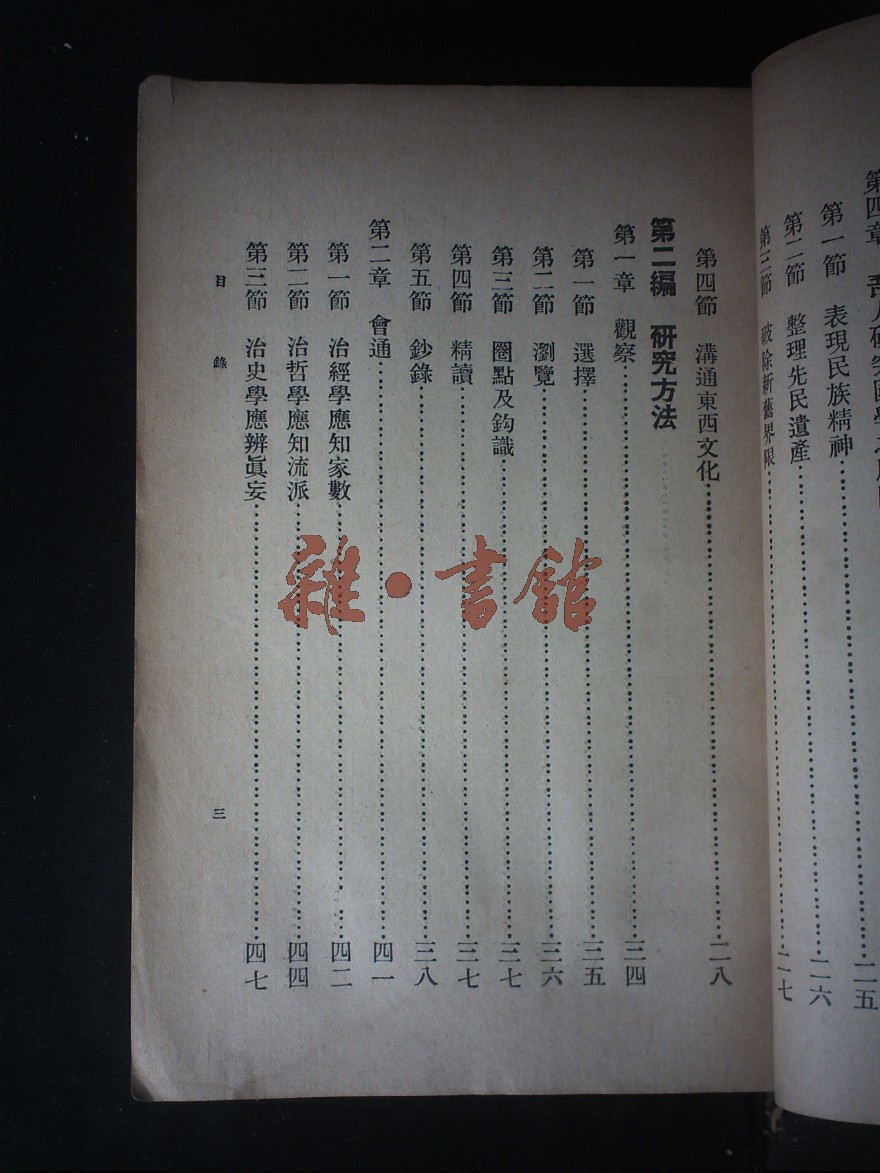 第四章
第一節 表現民族精神……二五
第二節 整理先民遺產……二六
第三節 破除新舊界限……二七
第四節 溝通東西文化……二八
第二編 研究方法
第一章 觀察……三四
第一節 選擇……三五
第二節 瀏覽……三六
第三節 圈點及鈎識……三七
第四節 精讀……三七
第五節 鈔錄……三八
第二章 會通……四一
第一節 治經學應知家數……四二
第二節 治哲學應知流派……四四
第三節 治史學應辨眞妄……四七
目錄
三
雜·書館